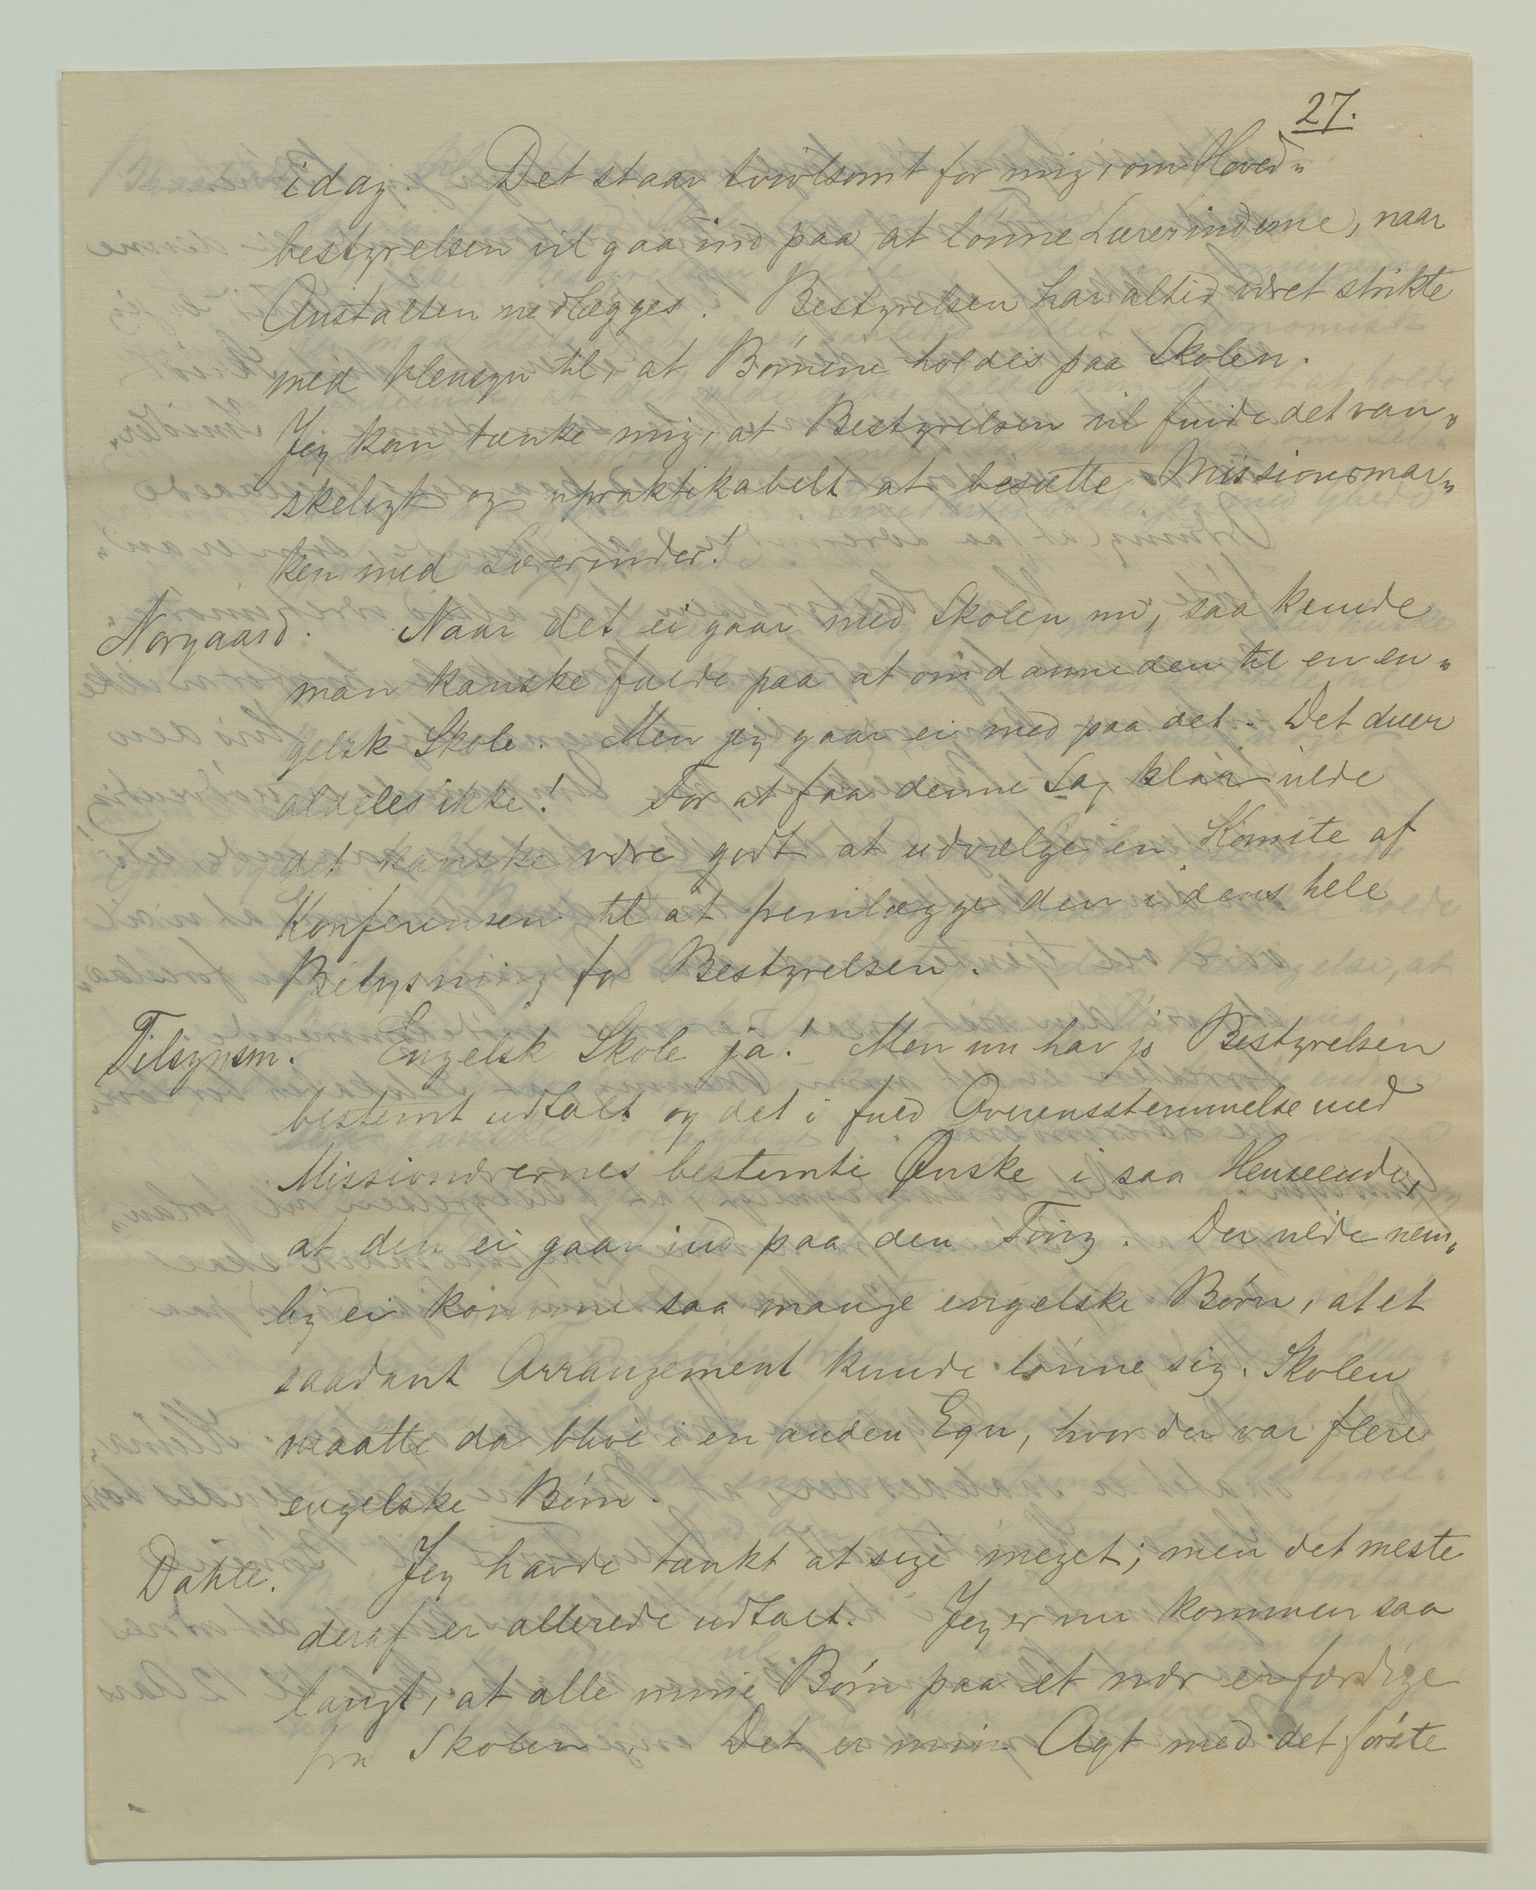 27.
idag. Det staar tvivlsomt for mig, om Hoved„
bestyrelsen vil gaa ind paa at lønne Lærerinderne, naar
Anstalten nedlægges. Bestyrelsen har altid været strikte
med Hensyn til, at Børnene holdes paa Skolen.
Jeg kan tænke mig, at Bestyrelsen vil finde det van„
skeligt og upraktikabelt at besætte Missionsmar„
ken med Lærerinder!
Norgaard. Naar det ei gaar med Skolen nu, saa kunde
man kanske falde paa at omdanne den til en en„
gelsk Skole. Men jeg gaar ei med paa det. Det duer
aldeles ikke! For at faa denne Sag klar vilde
det kanske være godt at udvælge en Komite af
Konferensen til at fremlægge den i dens hele
Belysning for Bestyrelsen.
Tilsynsm. Engelsk Skole ja! Men nu har jo Bestyrelsen
bestemt udtalt og det i fuld Overensstemmelse med
Missionærernes bestemte Ønske i saa Henseende,
at den ei gaar ind paa den Ting. Der vilde nem„
lig ei komme saa mange engelske Børn, at et
saadant Arrangement kunde lønne sig. Skolen
maatte da blive i en anden Egn, hvor der var flere
engelske Børn.
Dahle. Jeg havde tænkt at sige meget; men det meste
deraf er allerede udtalt. Jeg er nu kommen saa
langt, at alle mine Børn paa et nær er færdige
fra Skolen. Det er min Agt med det første